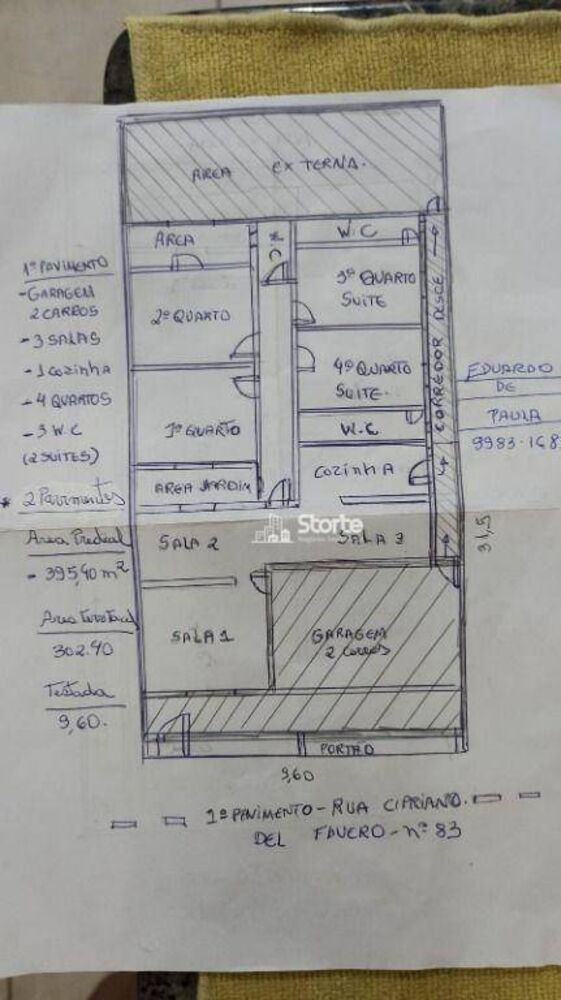 AREA EXTERNA.
AREA
W.C
W.C
1º PAVIMENTO
- GARAGEM
2 CARROS
- 3 SALAS
- 1 COZINHA
- 4 QUARTOS
- 3 W.C
(2 SUÍTES)
* 2 Pavimentos
Area Predial
- 395,40 m²
Area Territorial
302.40
Testada
9,60.
2º QUARTO
3º QUARTO
SUITE
4º QUARTO
SUITE.
1º QUARTO
W.C
COZINHA
AREA JARDIM
CORREDOR DESCE
EDUARDO
DE
PAULA
9983-168
Storte
SALA 2
SALA 3
31,5
SALA 1
GARAGEM
2 Carros
PORTÃO
9,60
1º PAVIMENTO - RUA CIPRIANO.
DEL FAVERO - nº 83